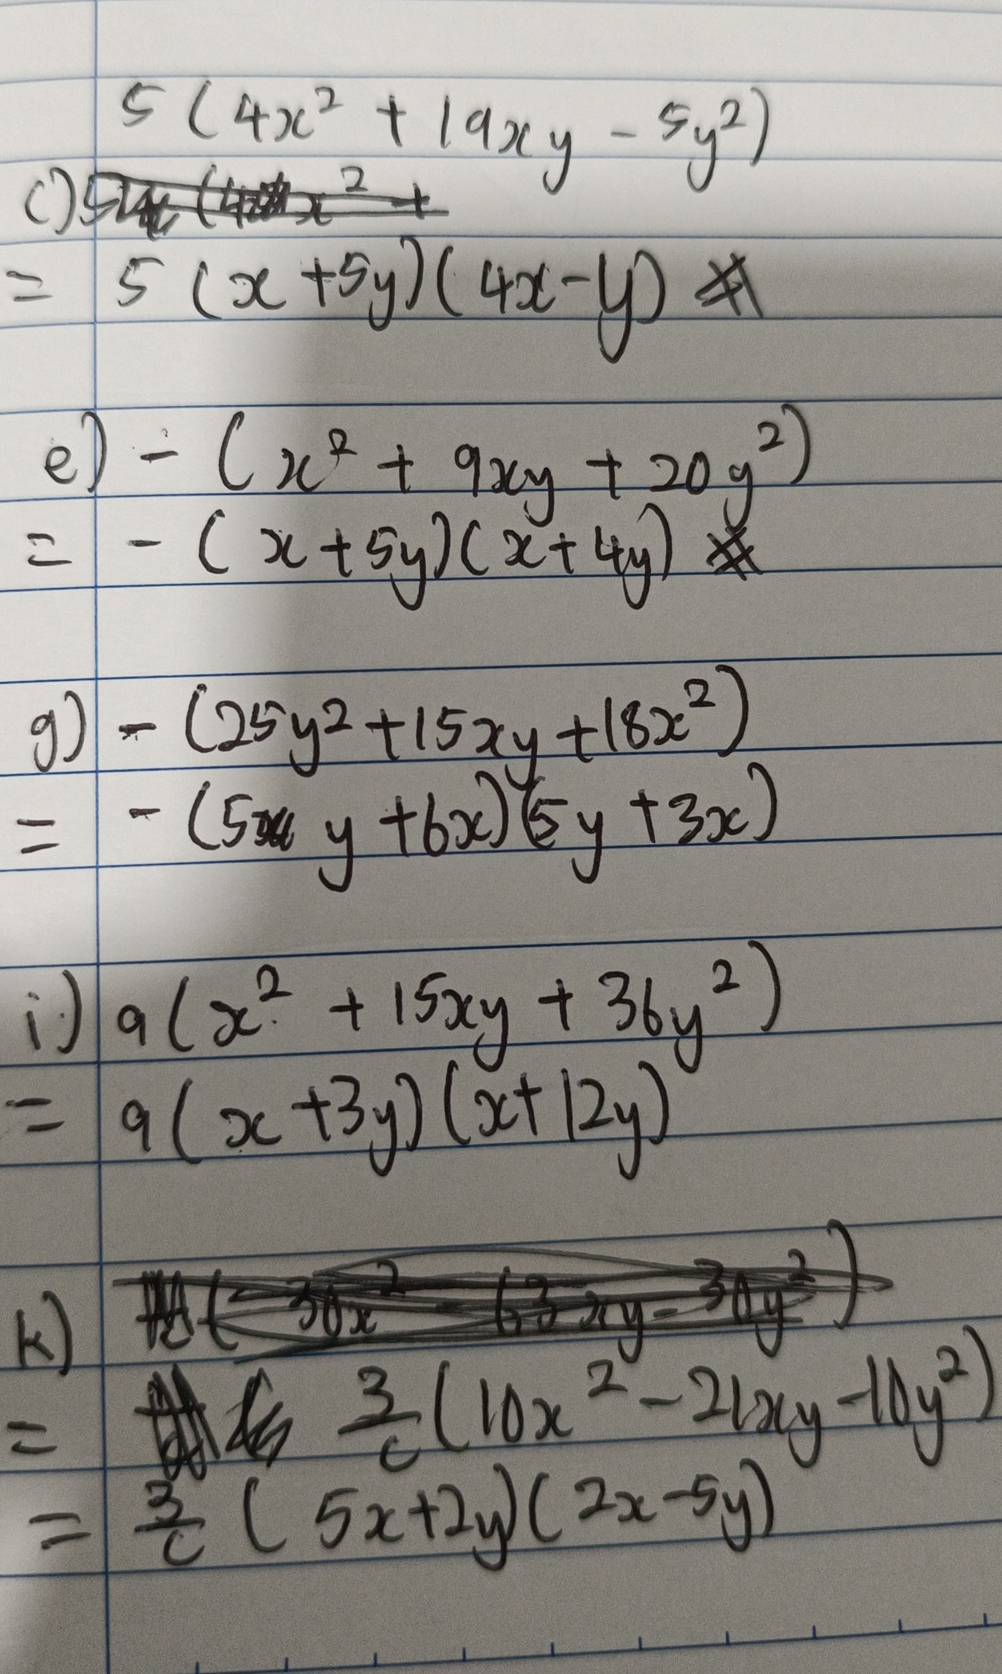 5 (4x² + 19xy - 5y²)
c)
= 5 (x + 5y)(4x - y) #
e) - (x² + 9xy + 20y²)
= - (x + 5y)(x + 4y) #
g) - (25y² + 15xy + 18x²)
= - (5 y + 6x)(5y + 3x)
i) 9(x² + 15xy + 36y²)
= 9(x + 3y)(x + 12y)
k)
= 3/c (10x² - 21xy - 10y²)
= 3/c (5x + 2y)(2x - 5y)